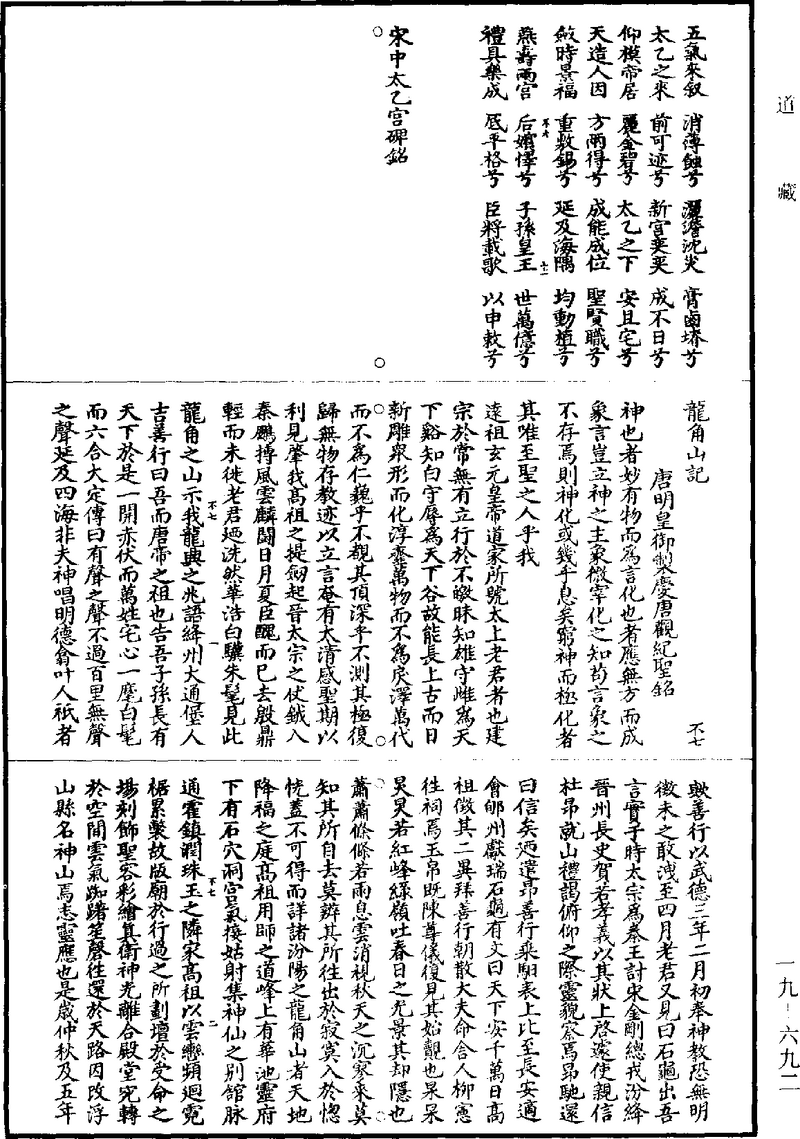 道藏
五氣來叙 消薄蝕兮 灑澹沈災 膏鹵塉兮
太乙之來 前可迹兮 新宮奕奕 成不日兮
仰模帝居 麗金碧兮 太乙之下 安且宅兮
天造人因 方兩得兮 成能成位 聖賢職兮
斂時景福 重敷錫兮 延及海隅 均動植兮
燕壽兩宮 后嬪懌兮 子孫皇王 世萬億兮
禮具樂成 底平格兮 臣將載歌 以申敕兮
宋中太乙宮碑銘
龍角山記
不七
唐明皇御製慶唐觀紀聖銘
神也者妙有物而爲言化也者應無方而成
象言豈立神之主象微宰化之知苟言象之
不存焉則神化或幾乎息矣窮神而極化者
其唯至聖之人乎我
遠祖玄元皇帝道家所號太上老君者也建
宗於常無有立行於不皦昧知雄守雌爲天
下谿知白守辱爲天下谷故能長上古而日
新雕衆形而化淳𩐎萬物而不爲戾澤萬代
而不爲仁巍乎不覩其頂深乎不測其極復
歸無物存教迹以立言奄有大清感聖期以
利見肇我高祖之提劒起晉太宗之仗鉞入
秦鵬摶風雲麟鬬日月夏臣醜而巳去殷鼎
輕而未徙老君廼洗然華浩白驥朱髦見此
龍角之山示我龍興之兆語絳州大通堡人
吉善行曰吾而唐帝之祖也告吾子孫長有
天下於是一開赤伏而萬姓宅心一麾白髦
而六合大定傳曰有聲之聲不過百里無聲
之聲延及四海非夫神唱明德翕叶人祇者
歟善行以武德三年二月初奉神教恐無明
徵未之敢洩至四月老君又見曰石龜出吾
言實于時太宗爲秦王討宋金剛總戎汾絳
晉州長史賀若孝義以其狀上啓遽使親信
杜昂就山禮謁俯仰之際靈貌察焉昂馳還
曰信矣廼遣昂善行乘馹表上比至長安適
會郇州獻瑞石龜有文曰天下安千萬日高
祖徵其二異拜善行朝散大夫命舍人柳憲
徃祠焉玉帛既陳尊儀復見其始覿也杲杲
炅炅若紅峰綠嶺吐春日之光景其却隱也
蕭蕭條條若雨息雲消視秋天之沉寥來莫
知其所自去莫辨其所往出於寂寞入於惚
恍蓋不可得而詳諸汾陽之龍角山者天地
降福之庭高祖用師之道峰上有華池靈府
下有石穴洞宮氣接姑射集神仙之別館脉
通霍鎮潤珠玉之隣家高祖以雲巒頻迴霓
椐累繫故版廟於行過之所劃壇於受命之
場刻飾聖容彩繪真衛神光離合殿堂宛轉
於空間雲氣踟躇笙聲往還於天路因改浮
山縣名神山焉恚靈應也是歲仲秋及五年
一九-六九二